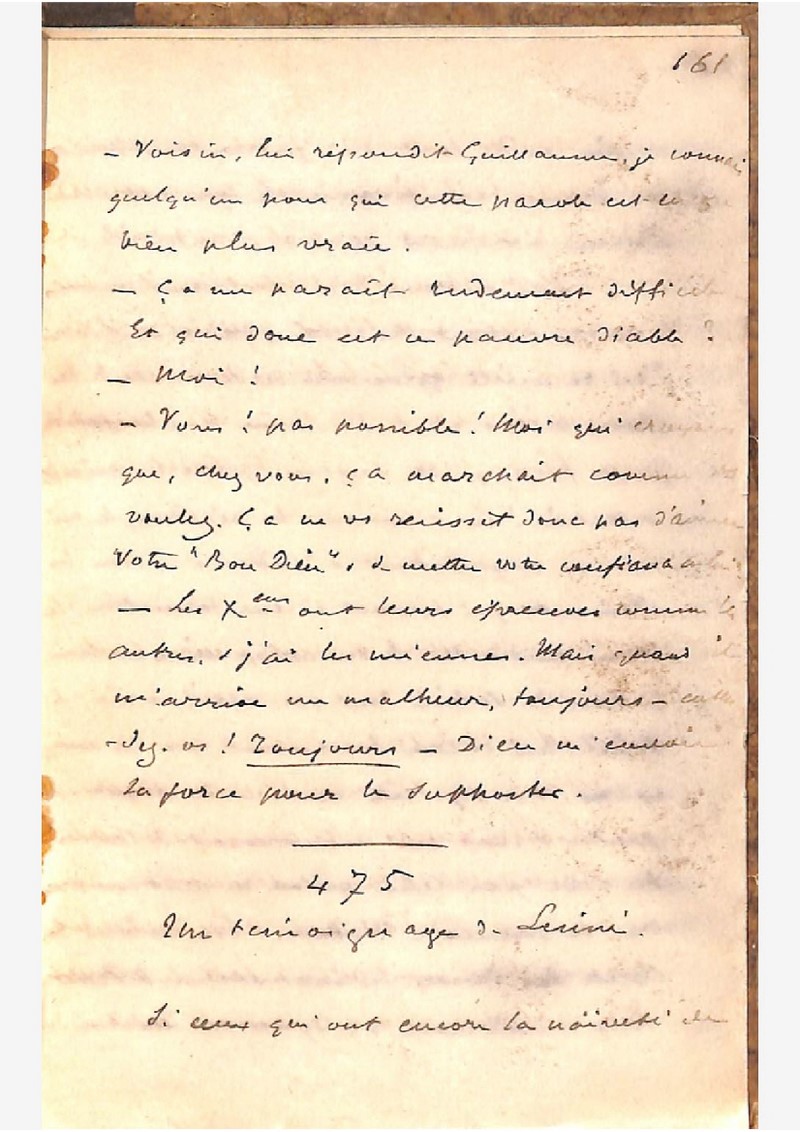 161
– Voisin, lui répondit Guillaume, je connai
quelqu'un pour qui cette parole est
bien plus vraie.
– Ça me paraît rudement difficil
Et qui donc est ce pauvre diable ?
– Moi !
– Vous ! pas possible ! Moi qui croyais
que, chez vous, ça marchait comme
voulez. Ça ne vs réussit donc pas d'aimer
votre "Bon Dieu", & de mettre votre confiance
– Les Xens ont leurs épreuves comme les
autres, & j'ai les miennes. Mais quand il
m'arrive un malheur, toujours –
-dez-vs ! Toujours – Dieu m'envoie
la force pour le supporter.
475
Un témoignage de
Si ceux qui ont encore la naïveté de